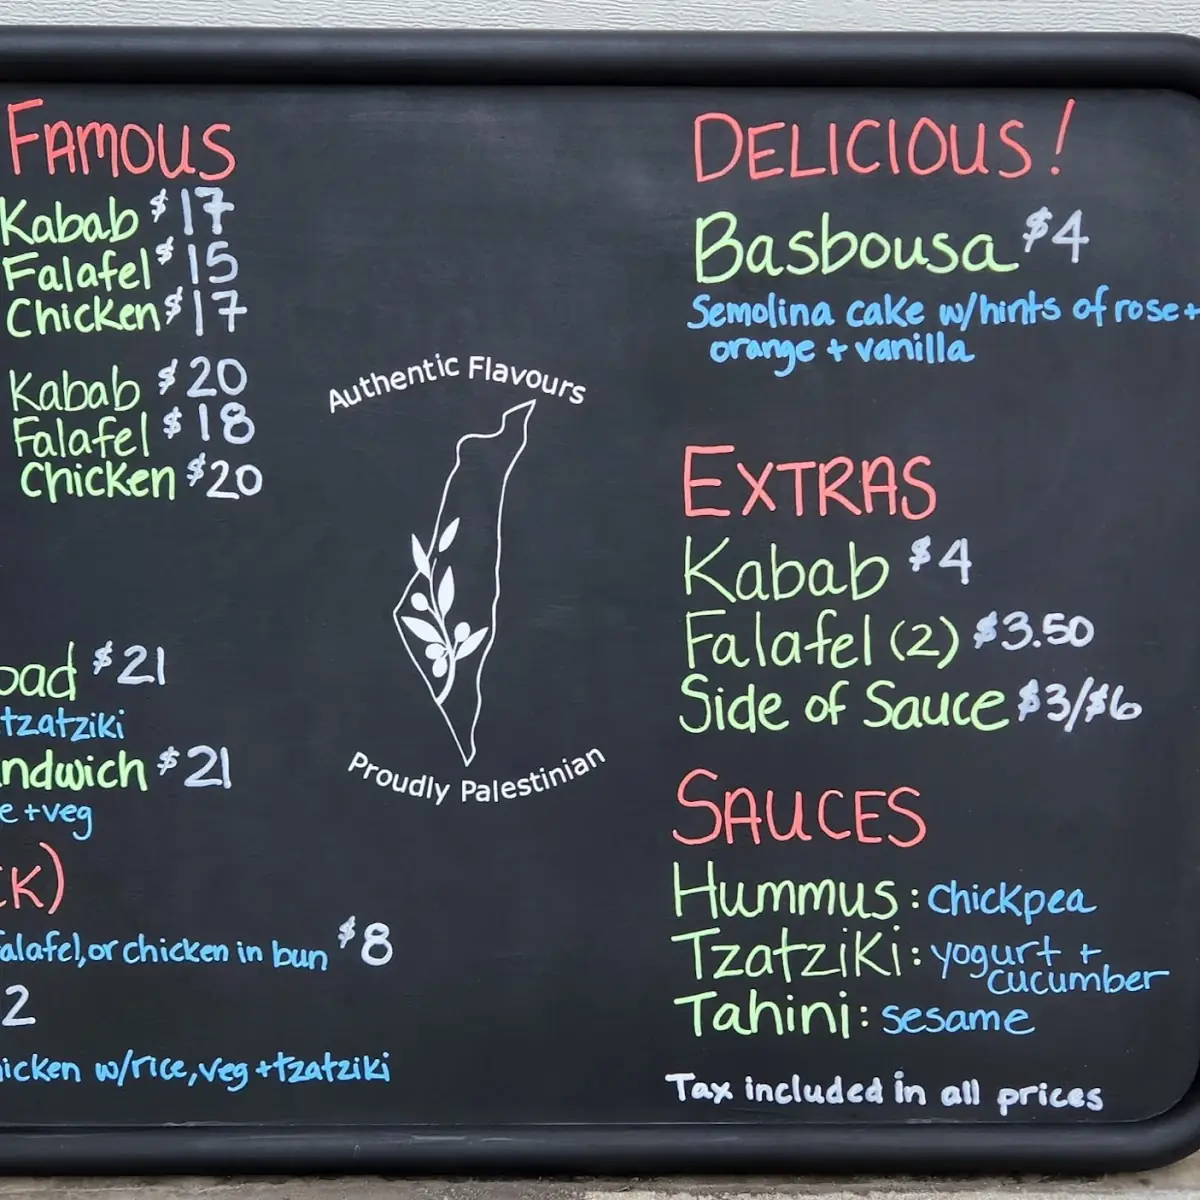 FAMOUS
Kabab $17
Falafel $15
Chicken $17
Kabab $20
Falafel $18
Chicken $20
$21
tzatziki
$21
+veg
falafel, or chicken in bun $8
2
w/rice, veg + tzatziki
Authentic Flavours
Proudly Palestinian
DELICIOUS!
Basbousa $4
Semolina cake w/hints of rose +
orange + vanilla
EXTRAS
Kabab $4
Falafel (2) $3.50
Side of Sauce $3/$6
SAUCES
Hummus: chickpea
Tzatziki: yogurt +
cucumber
Tahini: sesame
Tax included in all prices